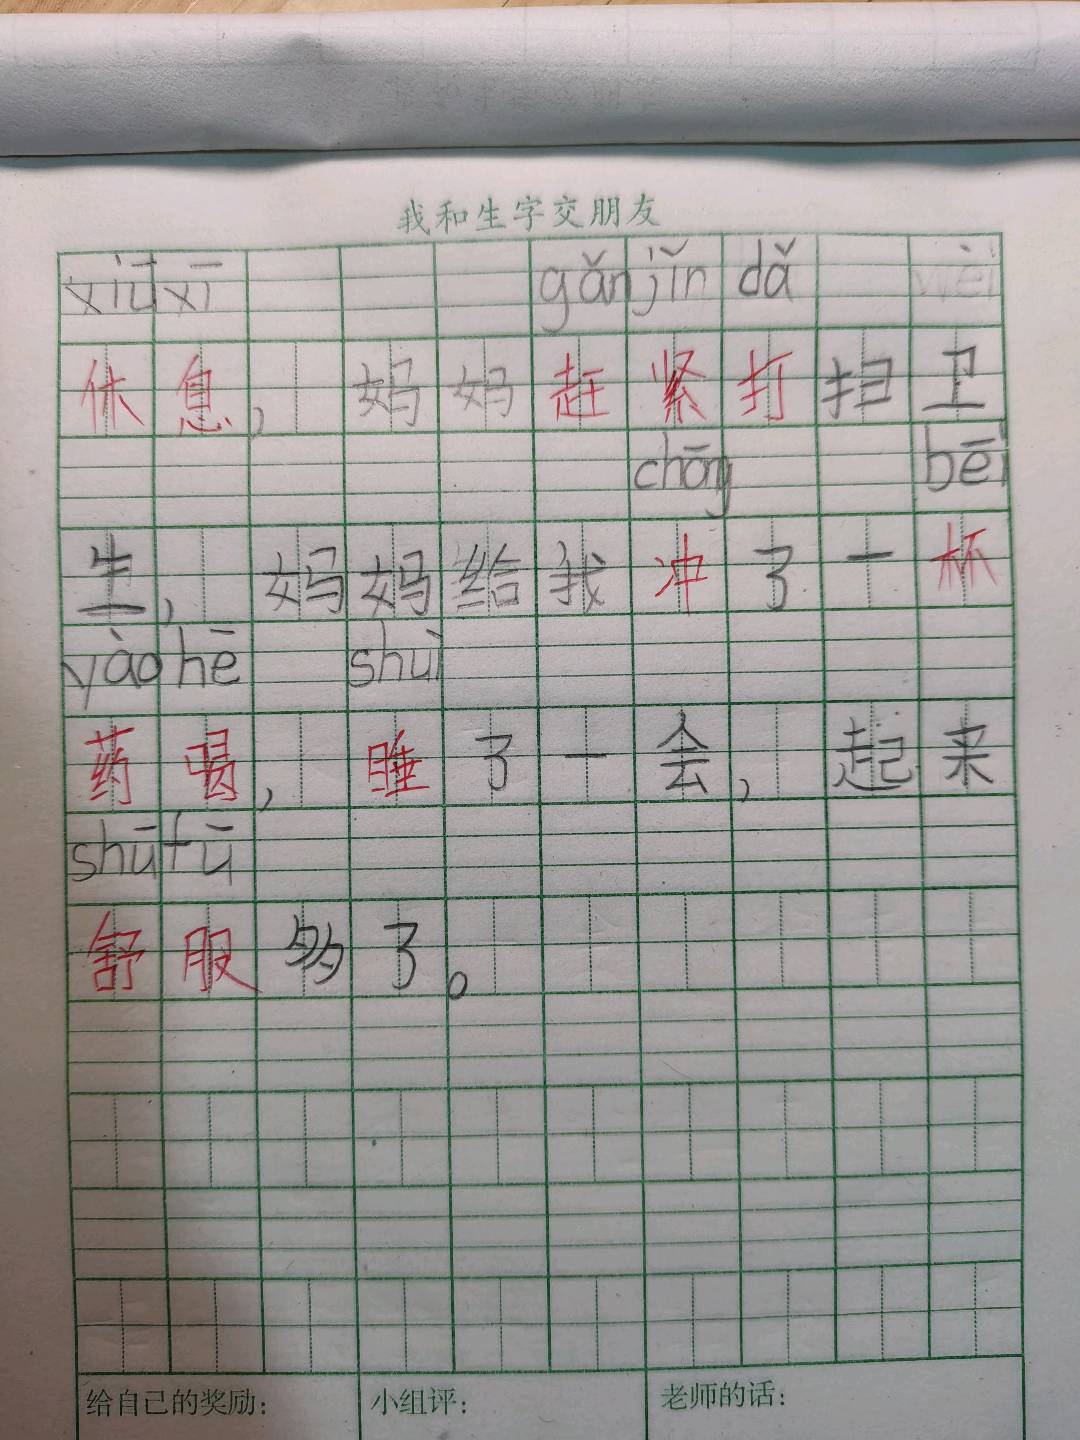 我和生字交朋友
xiū xī gǎn jǐn dǎ wèi
休息，妈妈赶紧打扫卫
chōng bēi
生，妈妈给我冲了一杯
yào hē shuì
药喝，睡了一会，起来
shū fū
舒服够了。
给自己的奖励： 小组评： 老师的话：